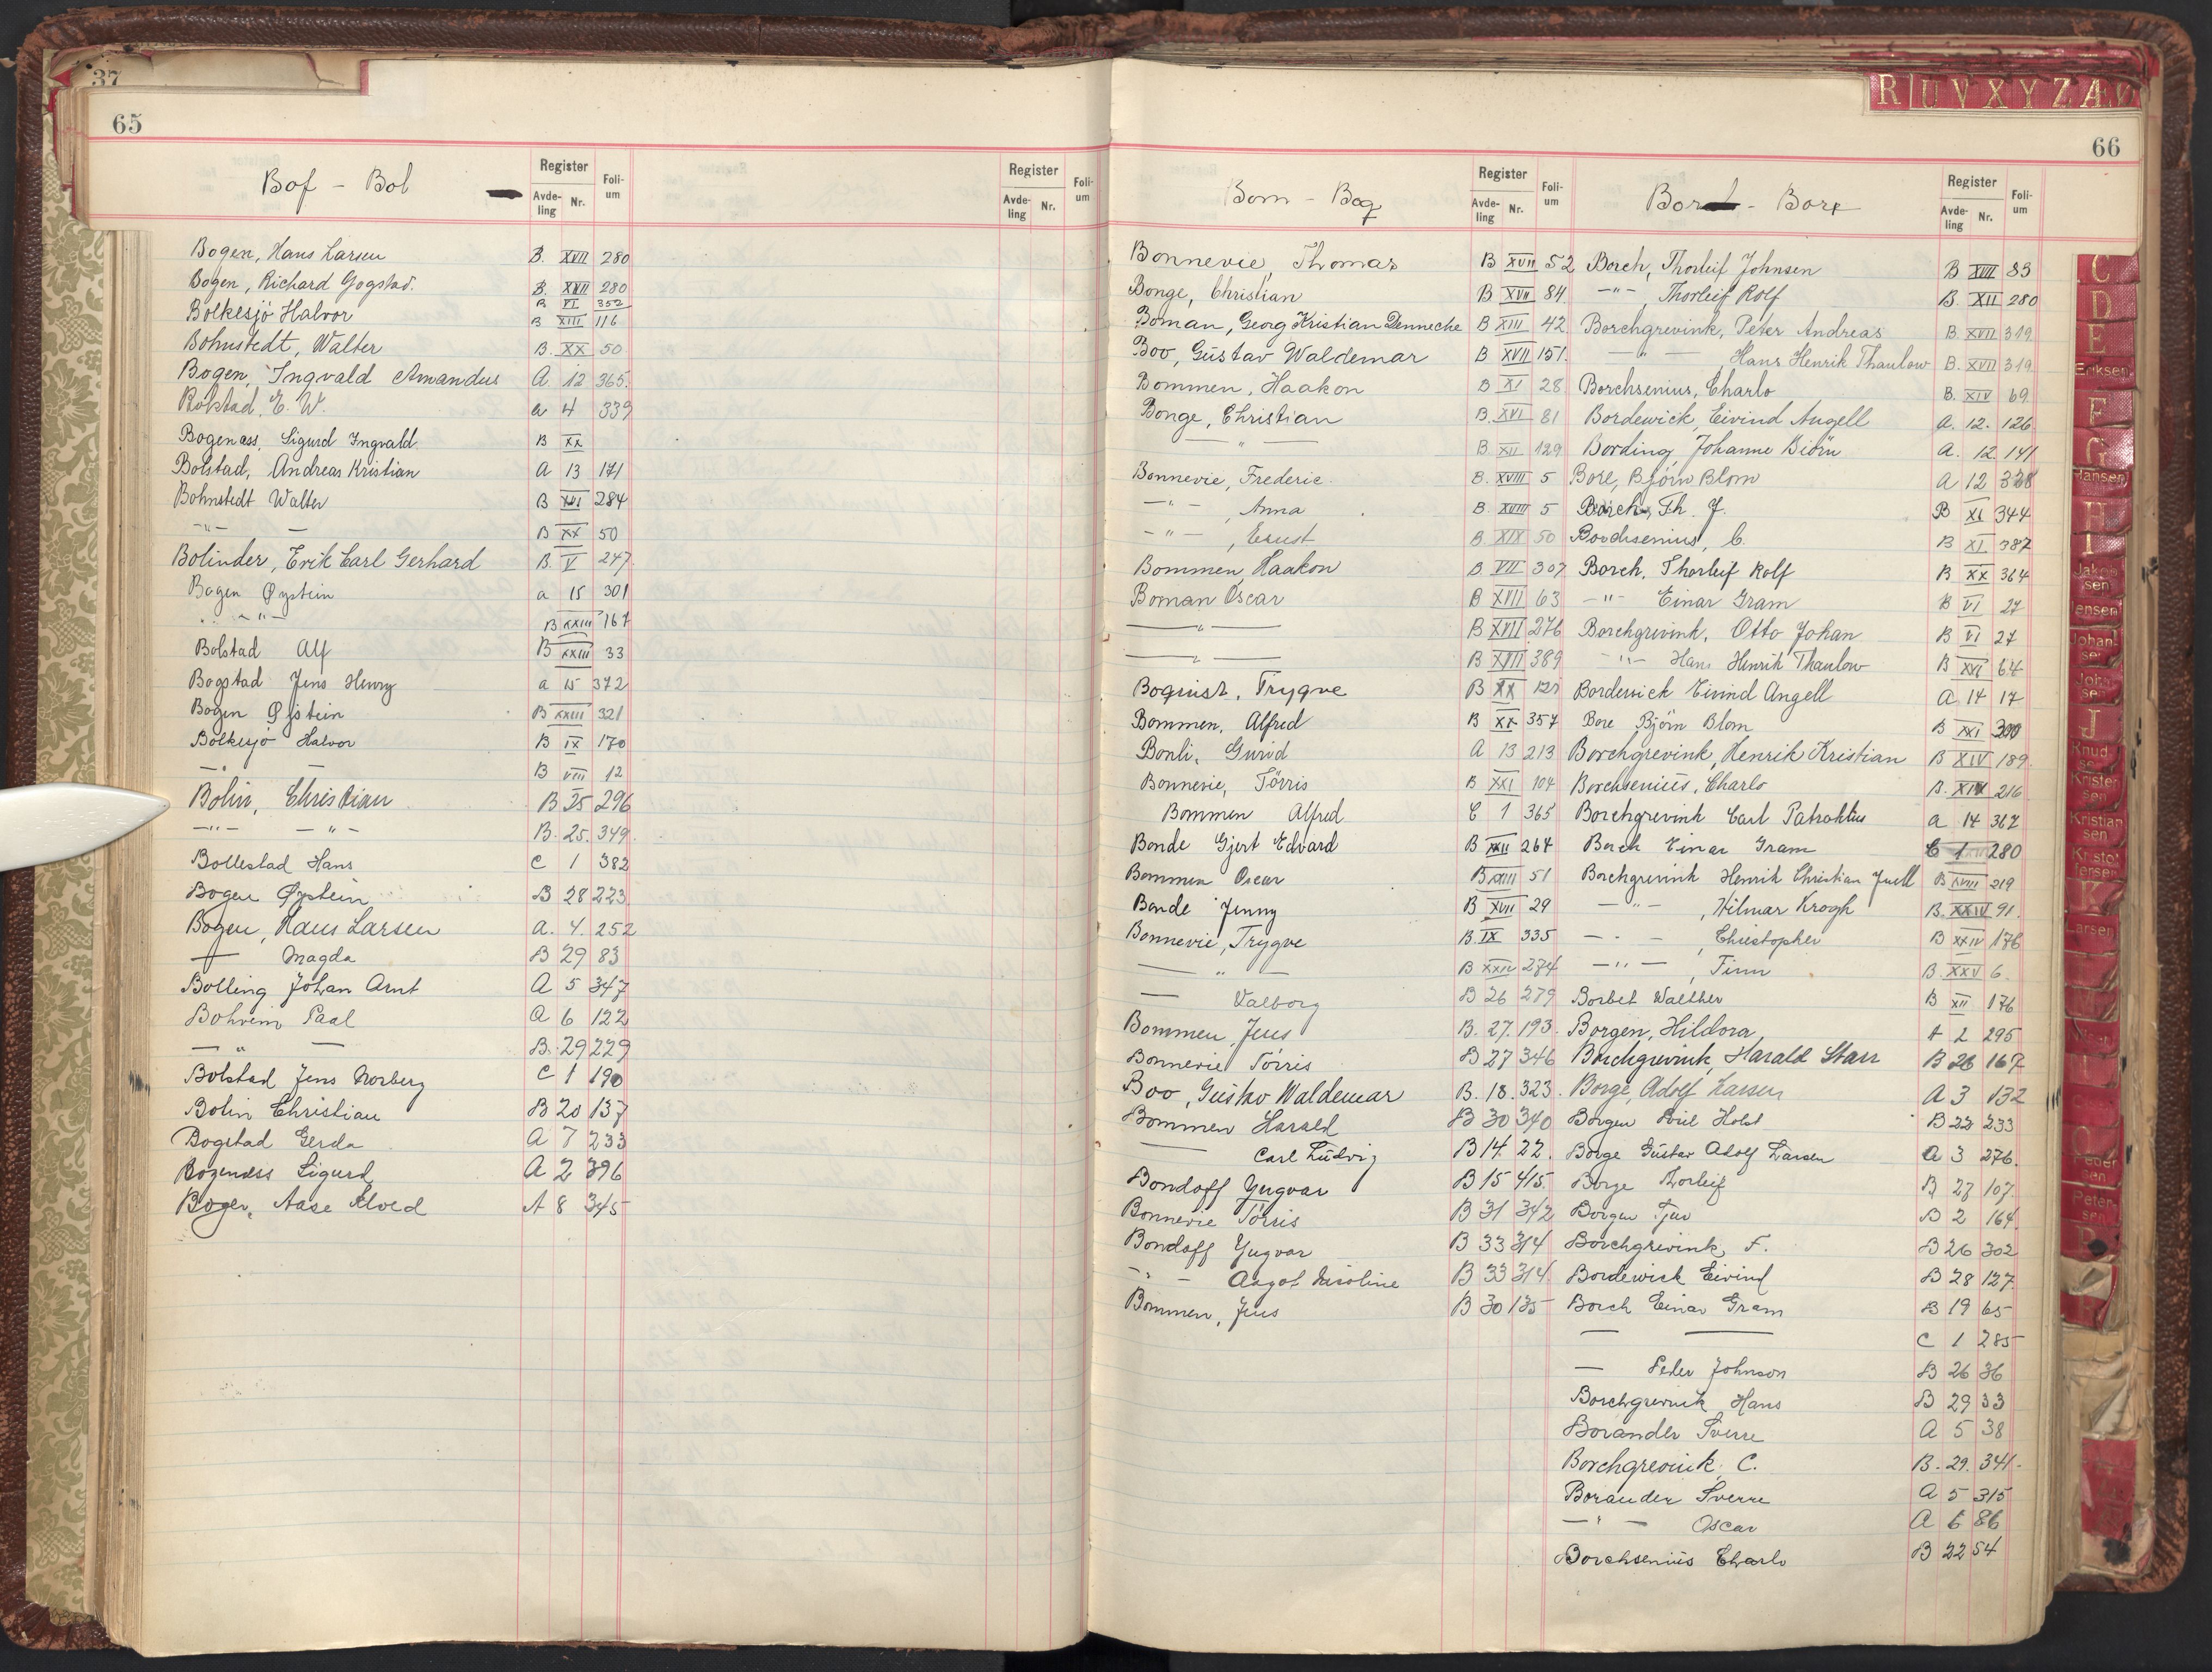 37
65
Bof - Bol
Register
Avde-ling
Nr.
Foli-um
Register
Avde-ling
Nr.
Foli-um
Bogen, Hans Larsen B. XVII 280
Bogen, Richard Gogstad. B. XVII 280
B VI 352
Bolkesjö Halvor B XIII 116
Bohnstedt, Walter B. XX 50
Bogen, Ingvald Amandus A 12 365.
Bolstad, E. W. a 4 339
Bogenæss, Sigurd Ingvald B XX
Bolstad, Andreas Kristian A 13 171
Bohnstedt Walter B XVI 284
-"- — B XX 50
Bolinder, Erik Carl Gerhard B. V 247.
Bogen Øystein a 15 301
-"- B XXIII 167
Bolstad Alf B XXIII 33
Bogstad Jens Henry a 15 372
Bogen Øystein B XXIII 321
Bolkesjø Halvor B IX 170
-"- — B VIII 12
Bolin, Christian B 25 296
-"- -"- B. 25. 349.
Bollestad Hans C 1 382
Bogen Øystein B 28 223
Bogen, Hans Larsen A. 4. 252
— Magda B 29 83
Bolling Johan Arnt A 5 347
Bohrem Paal A 6 122
— " — B. 29 229
Bolstad Jens Norberg C 1 190
Bolin Christian B 20 137
Bogstad Gerda A 7 233
Bogenæss Sigurd A 2 396
Bogen, Aase Alved A 8 345
R U V X Y Z Æ Ø
66
Bom - Boq
Register
Avde-ling
Nr.
Foli-um
Bonnevie, Thomas B XVII 52
Bonge, Christian B XVII 84.
Boman, Georg Kristian Denneche B XIII 42
Boo, Gustav Waldemar B XVII 151.
Bommen, Haakon B XI 28
Bonge, Christian B. XVI 81
— " — B. XII 129
Bonnevie, Frederic. B. XVIII 5
-"- , Anna B. XVIII 5
-"- , Ernst B. XIX 50
Bommen, Haakon B VII 307
Boman Oscar B XVII 63
— " — B XVII 276
— " — B XVII 389
Boquist, Trygve B XX 127
Bommen, Alfred B XX 357
Bonli, Gurid A 13 213
Bonnevie, Törris B XXI 104
Bommen Alfred C 1 365
Bonde Gjert Edvard B XXII 264
Bommen Oscar B XXIII 51
Bonde Jenny B XVII 29
Bonnevie, Trygve B. IX 335
— " — B XXIV 274
— Valborg B 26 279
Bommen, Jens B. 27. 193.
Bonnevie Törris B 27 346
Boo, Gustav Waldemar B. 18. 323.
Bommen Harald B 30 340
— Carl Ludvig B 14. 22.
Bondoff Yngvar B 15 415.
Bonnevie Törris B 31 342
Bondoff Yngvar B 33 314
-"- Aagot Nicoline B 33 314.
Bommen, Jens B 30 135
Bor - Borx
Register
Avde-ling
Nr.
Foli-um
Borch, Thorleif Johnsen B XVIII 83
-"- , Thorleif Rolf B. XII 280
Borchgrevink, Peter Andreas B. XVII 319.
— " — Hans Henrik Thaulow B. XVII 319.
Borchsenius, Charlo B. XIV 69.
Bordewick, Eivind Angell A. 12. 126.
Bording, Johanne Biörn A. 12. 141
Bore, Björn Blom A 12 328
Borch, Th. J. B XI 344
Borchsenius, C. B XI. 387
Borch, Thorleif Rolf B XX 364
-"- Einar Gram B VI 27
Borchgrevink, Otto Johan B VI 27
-"- Hans Henrik Thaulow B XVI 64
Bordewick Eivind Angell A. 14 17
Bore Björn Blom B XXI 300
Borchgrevink, Henrik Kristian B XIV 189.
Borchsenius, Charlo B. XIX 216
Borchgrevink Carl Patroklus a 14 367
Borch Einar Gram C 1 280
Borchgrevink Henrik Christian Juell B XVIII 219
— " — , Hilmar Krogh B. XXIV 91.
— " — , Christopher B XXIV 176
— " — , Finn B. XXV 6.
Borbet Walther B XII 176
Borgen, Hildora A 2 295
Borchgrevink, Harald Starr B 26 167
Borge, Adolf Larsen A 3 132
Borgen Aril Holst B 22 233
Borge Gustav Adolf Larsen A 3 276.
Borge Thorleif B 27 107.
Borgen Tjer B 2 164.
Borchgrevink, F. B 26 302
Bordewick Eivind B 28 127.
Borch Einar Gram B 19 65
— — C 1 285
— Peder Johnson B 26 36
Borchgrevink Hans B 29 33
Borander Sverre A 5 38
Borchgrevink, C. B. 29. 341.
Borander Sverre A 5 315
-"- Oscar A 6 86
Borchsenius Charlo B 22 54
C
D
E
Eriksen
F
G
Hansen
H
I
Jakobsen
Jensen
Johansen
Johnsen
J
Knudsen
Kristensen
Kristiansen
Kristoffersen
K
Larsen
L
Pedersen
Petersen
P